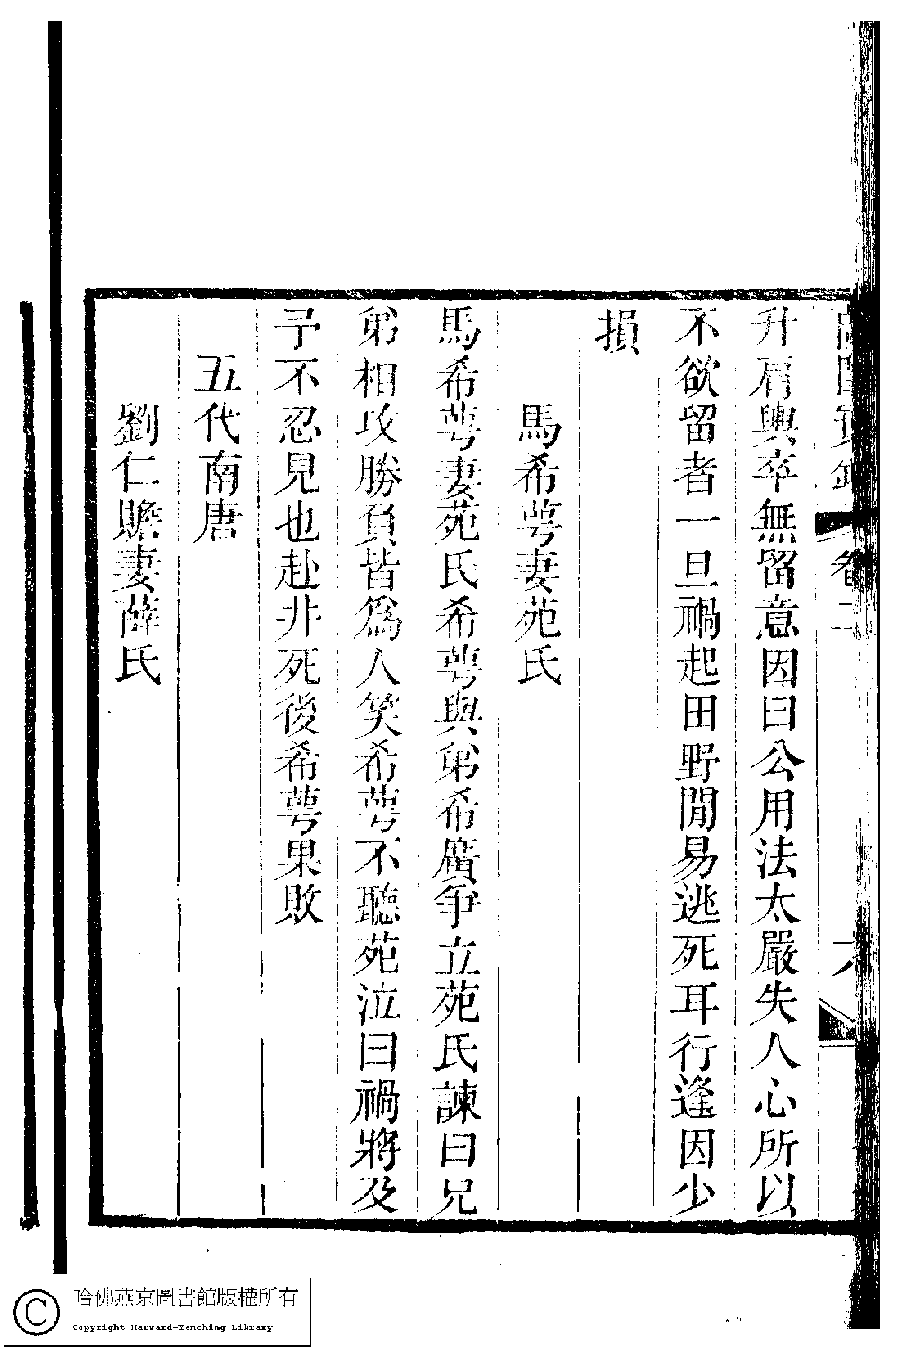 卷二 六
升肩輿卒無留意因曰公用法太嚴失人心所以
不欲留者一旦禍起田野閒易逃死耳行逢因少
損
馬希萼妻苑氏
馬希萼妻苑氏希萼與弟希廣爭立苑氏諫曰兄
弟相攻勝負皆爲人笑希萼不聽苑泣曰禍將及
予不忍見也赴井死後希萼果敗
五代南唐
劉仁贍妻薛氏
哈佛燕京圖書館版權所有
Copyright Harvard-Yenching Library